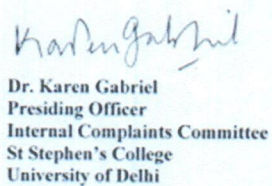 Karen Gabriel
Dr. Karen Gabriel
Presiding Officer
Internal Complaints Committee
St Stephen's College
University of Delhi